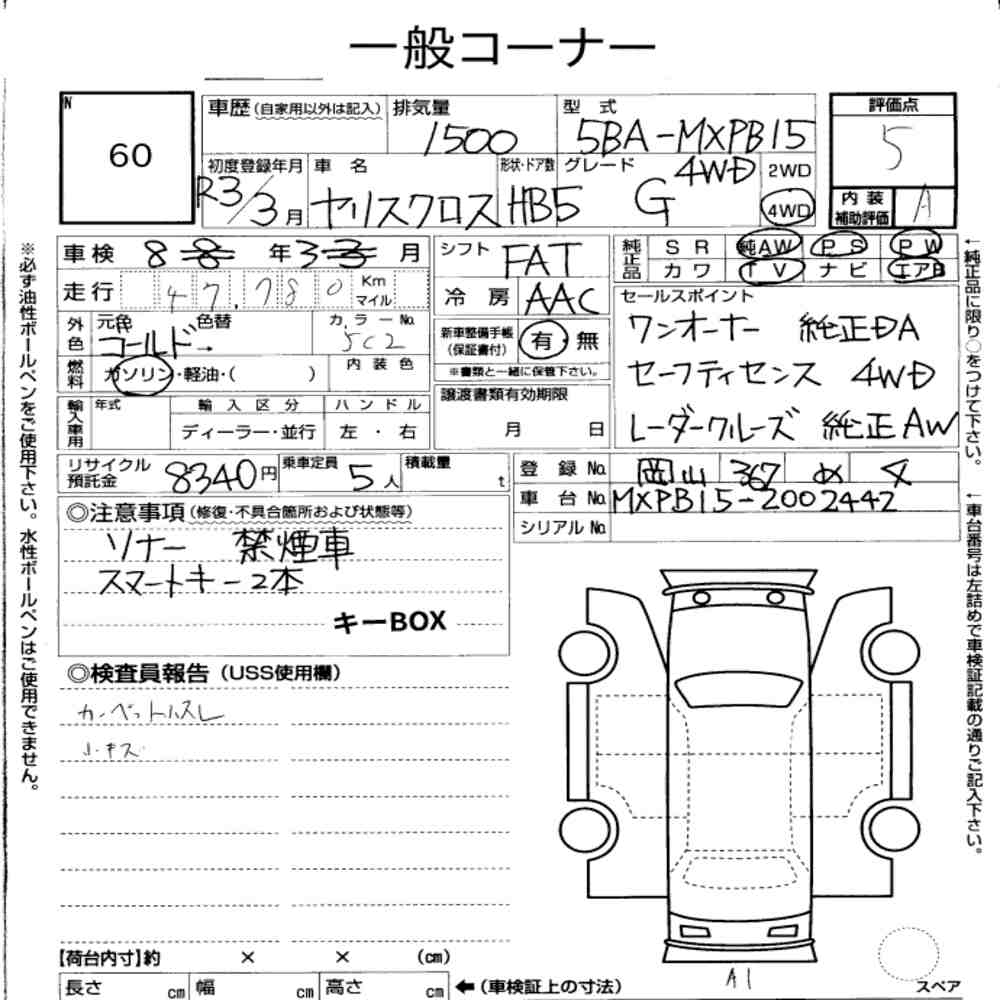 一般コーナー
N
60
車歴(自家用以外は記入)
排気量
1500
型 式
5BA-MXPB15
評価点
5
初度登録年月
R3/3月
車 名
ヤリスクロス
形状・ドア数
HB5
グレード
4WD
G
2WD
4WD
内 装
補助評価
A
車検 8 8 年 3 3 月
シフト
FAT
純正品
SR 純AW PS PW
カワ TV ナビ エアB
走行 47,780 Km
マイル
冷 房 AAC
セールスポイント
ワンオーナー 純正DA
セーフティセンス 4WD
レーダークルーズ 純正AW
外色
元色
ゴールド→
色替
カラーNo.
5C2
新車整備手帳
(保証書付)
有・無
※書類と一緒に保管下さい。
燃料
ガソリン・軽油・( )
内 装 色
譲渡書類有効期限
月 日
輸入車用
年式
輸 入 区 分
ハンドル
ディーラー・並行
左・右
リサイクル
預託金
8340円
乗車定員
5人
積載量
t
登 録 No. 岡山 367 め 4
車 台 No. MXPB15-2002442
シリアルNo.
◎注意事項(修復・不具合箇所および状態等)
ソナー 禁煙車
スマートキー2本
キーBOX
◎検査員報告(USS使用欄)
カーペットハズレ
小キズ
【荷台内寸】約 × × (cm)
長さ cm 幅 cm 高さ cm ←(車検証上の寸法)
A1
スペア
※必ず油性ボールペンをご使用下さい。水性ボールペンはご使用できません。
←純正品に限り○をつけて下さい。
←車台番号は左詰めで車検証記載の通りご記入下さい。